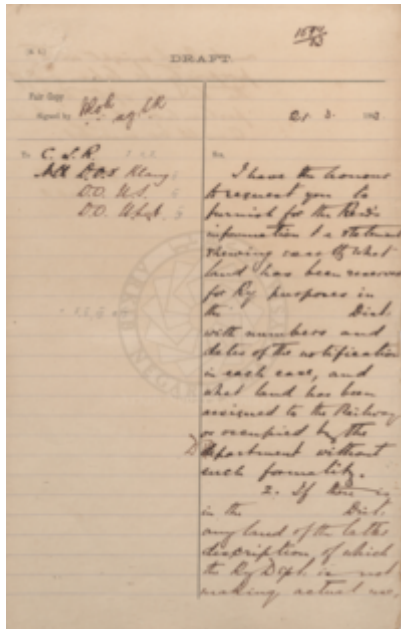 DRAFT.
Fair Copy
Signed by
21. 3.
To C. L. R.
All D.O.s Klang
D.O. U.S.
D.O. U.L.
Sir,
I have the honour
to request you to
furnish for the Resdt's
information a statement
shewing what
land has been reserved
for Ry purposes in
the Dist.
with numbers and
dates of the notification
in each case, and
what land has been
assigned to the Railway
or occupied by the
Department without
such formality.
2. If there is
in the Dist.
any land of the latter
description, of which
the Ry Dept. is not
making actual use,